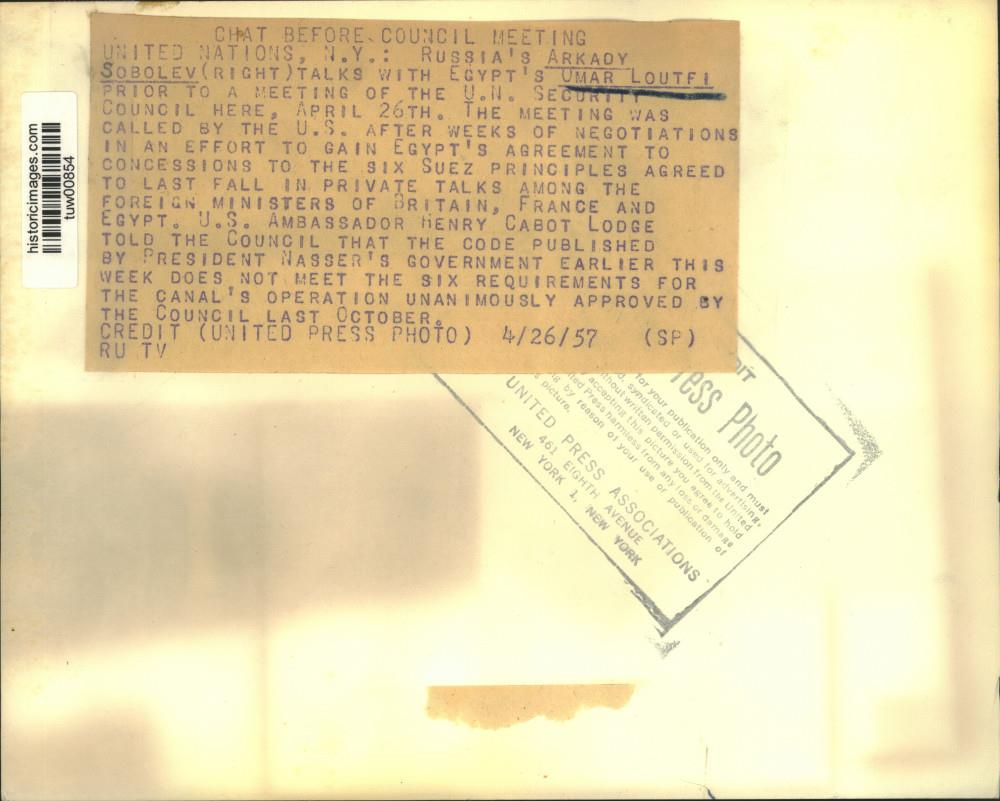 CHAT BEFORE COUNCIL MEETING
UNITED NATIONS, N.Y.: RUSSIA'S ARKADY
SOBOLEV(RIGHT)TALKS WITH EGYPT'S OMAR LOUTFI
PRIOR TO A MEETING OF THE U.N. SECURITY
COUNCIL HERE, APRIL 26TH. THE MEETING WAS
CALLED BY THE U.S. AFTER WEEKS OF NEGOTIATIONS
IN AN EFFORT TO GAIN EGYPT'S AGREEMENT TO
CONCESSIONS TO THE SIX SUEZ PRINCIPLES AGREED
TO LAST FALL IN PRIVATE TALKS AMONG THE
FOREIGN MINISTERS OF BRITAIN, FRANCE AND
EGYPT. U.S. AMBASSADOR HENRY CABOT LODGE
TOLD THE COUNCIL THAT THE CODE PUBLISHED
BY PRESIDENT NASSER'S GOVERNMENT EARLIER THIS
WEEK DOES NOT MEET THE SIX REQUIREMENTS FOR
THE CANAL'S OPERATION UNANIMOUSLY APPROVED BY
THE COUNCIL LAST OCTOBER.
CREDIT (UNITED PRESS PHOTO) 4/26/57 (SP)
RU TV
historicimages.com
tuw00854
Photo
for your publication only and must
syndicated or used for advertising,
without written permission from the United
accepting this picture you agree to hold
Press harmless from any loss or damage
by reason of your use or publication of
picture.
UNITED PRESS ASSOCIATIONS
461 EIGHTH AVENUE
NEW YORK 1, NEW YORK